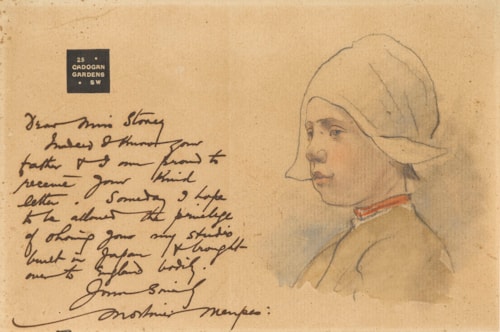 25
CADOGAN
GARDENS
SW
Dear Miss Stoney
Indeed I know your
father & I am proud to
receive your kind
letter. Someday I hope
to be allowed the privilege
of showing you my studio
built in Japan & brought
over to England bodily.
Yours Sincly
Mortimer Menpes: